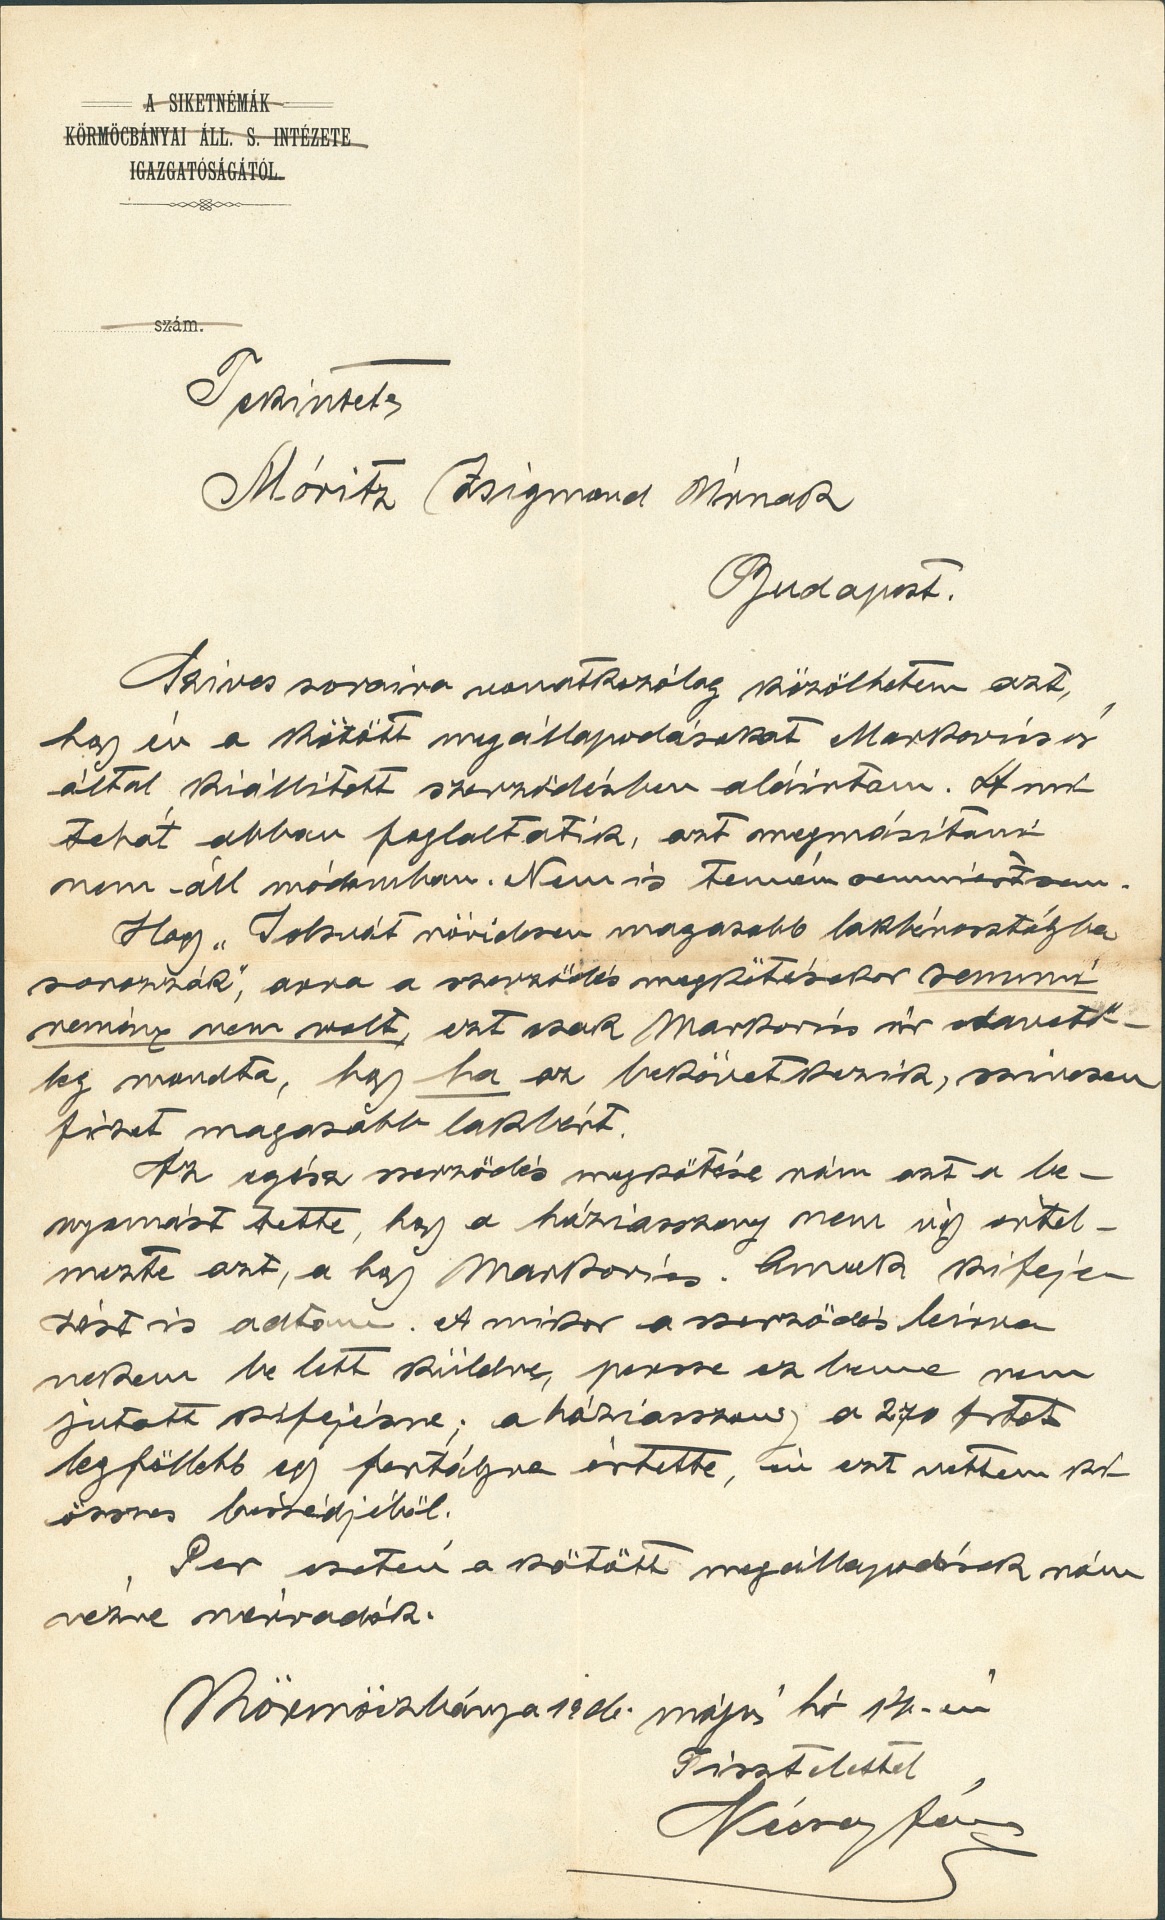 A SIKETNÉMÁK
KÖRMÖCBÁNYAI ÁLL. S. INTÉZETE
IGAZGATÓSÁGÁTÓL.
szám.
Tekintetes
Móritz Zsigmond Úrnak
Budapest.
Szives soraira vonatkozólag közölhetem azt,
hogy én a kötött megállapodásokat Markovics úr
által kiállított szerződésben aláirtam. A mi
tehát abban foglaltatik, azt megmásítani
nem áll módomban. Nem is tenném semmiért sem.
Hogy „Tolsvát rövidesen magasabb lakbérosztályba
sorozzák", arra a szerződés megkötésekor semmi
remény nem volt, ezt csak Markovics úr odavető-
leg mondta, hogy ha az bekövetkezik, szivesen
fizet magasabb lakbért.
Az egész szerződés megkötése rám azt a be-
nyomást tette, hogy a háziasszony nem úgy értel-
mezte azt, a hogy Markovics. Annak kifeje-
zést is adtam. A mikor a szerződés leirva
nekem be lett küldve, persze ez benne nem
jutott kifejésre; a háziasszony a 270 frtot
legföllebb egy fertályra értette, én ezt vettem ki
összes beszédjéből.
Per esetén a kötött megállapodások rám
nézve mérvadók.
Körmöczbánya május hó 14-én
Tisztelettel